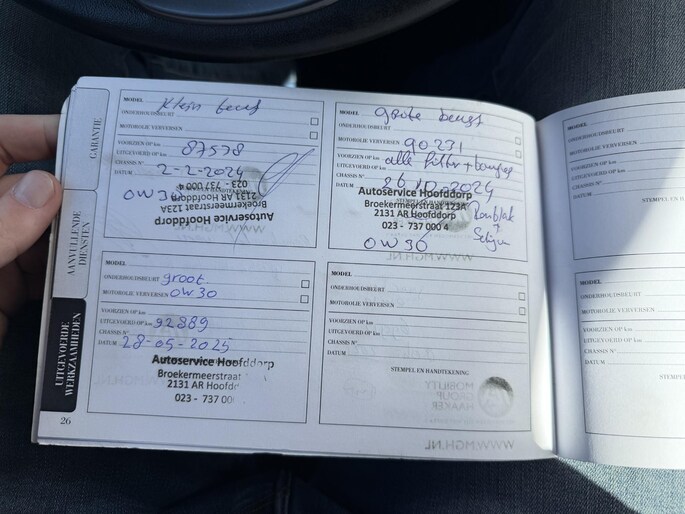 GARANTIE
AANVULLENDE
DIENSTEN
UITGEVOERDE
WERKZAAMHEDEN
26
MODEL klein beurt
ONDERHOUDSBEURT
MOTOROLIE VERVERSEN
VOORZIEN OP km 87578
UITGEVOERD OP km
CHASSIS N°
DATUM 2-2-2024
0W30
Autoservice Hoofddorp
Broekermeerstraat 123A
2131 AR Hoofddorp
023 - 737 000 4
MODEL grote beurt
ONDERHOUDSBEURT
MOTOROLIE VERVERSEN 90231
VOORZIEN OP km
UITGEVOERD OP km alle filter +
CHASSIS N°
DATUM 2024
Autoservice Hoofddorp
Broekermeerstraat 123A
2131 AR Hoofddorp
023 - 737 000 4
0W30
WWW.MGH.NL
MODEL
ONDERHOUDSBEURT groot
MOTOROLIE VERVERSEN 0W30
VOORZIEN OP km
UITGEVOERD OP km 92889
CHASSIS N°
DATUM 28-05-2025
Autoservice Hoofddorp
Broekermeerstraat
2131 AR Hoofdd
023 - 737 00
MODEL
ONDERHOUDSBEURT
MOTOROLIE VERVERSEN
VOORZIEN OP km
UITGEVOERD OP km
CHASSIS N°
DATUM
STEMPEL EN HANDTEKENING
MOBILITY
GROUP
HAAKER
WWW.MGH.NL
MODEL
ONDERHOUDSBEURT
MOTOROLIE VERVERSEN
VOORZIEN OP km
UITGEVOERD OP km
CHASSIS N°
DATUM
STEMPEL EN H
MODEL
ONDERHOUDSBEURT
MOTOROLIE VERVERSEN
VOORZIEN OP km
UITGEVOERD OP km
CHASSIS N°
DATUM